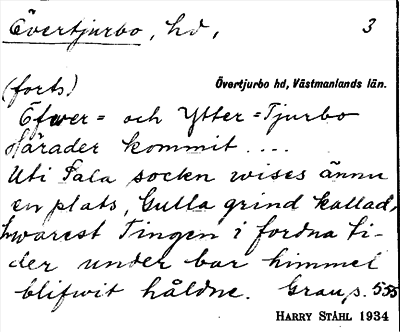 Övertjurbo, hd, 3
Övertjurbo hd, Västmanlands län.
(forts)
Öfwer= och Ytter=Tjurbo
Härader kommit ....
Uti Tala socken wises ännu
en plats, Gulla grind kallad,
hwarest Tingen i fordna ti-
der under bar himmel
blifwit håldne. Grau, s. 555
HARRY STÅHL 1934